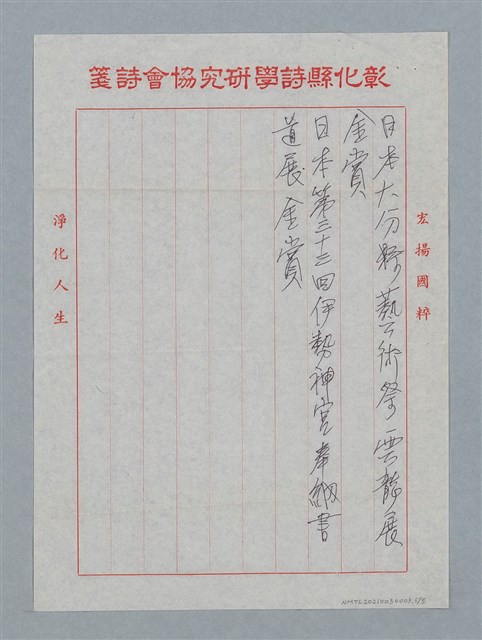 彰化縣詩學研究協會詩箋
宏揚國粹
日本大分縣藝術祭雲龍展
金賞
日本第三十三回伊勢神宮奉納書
道展金賞
淨化人生